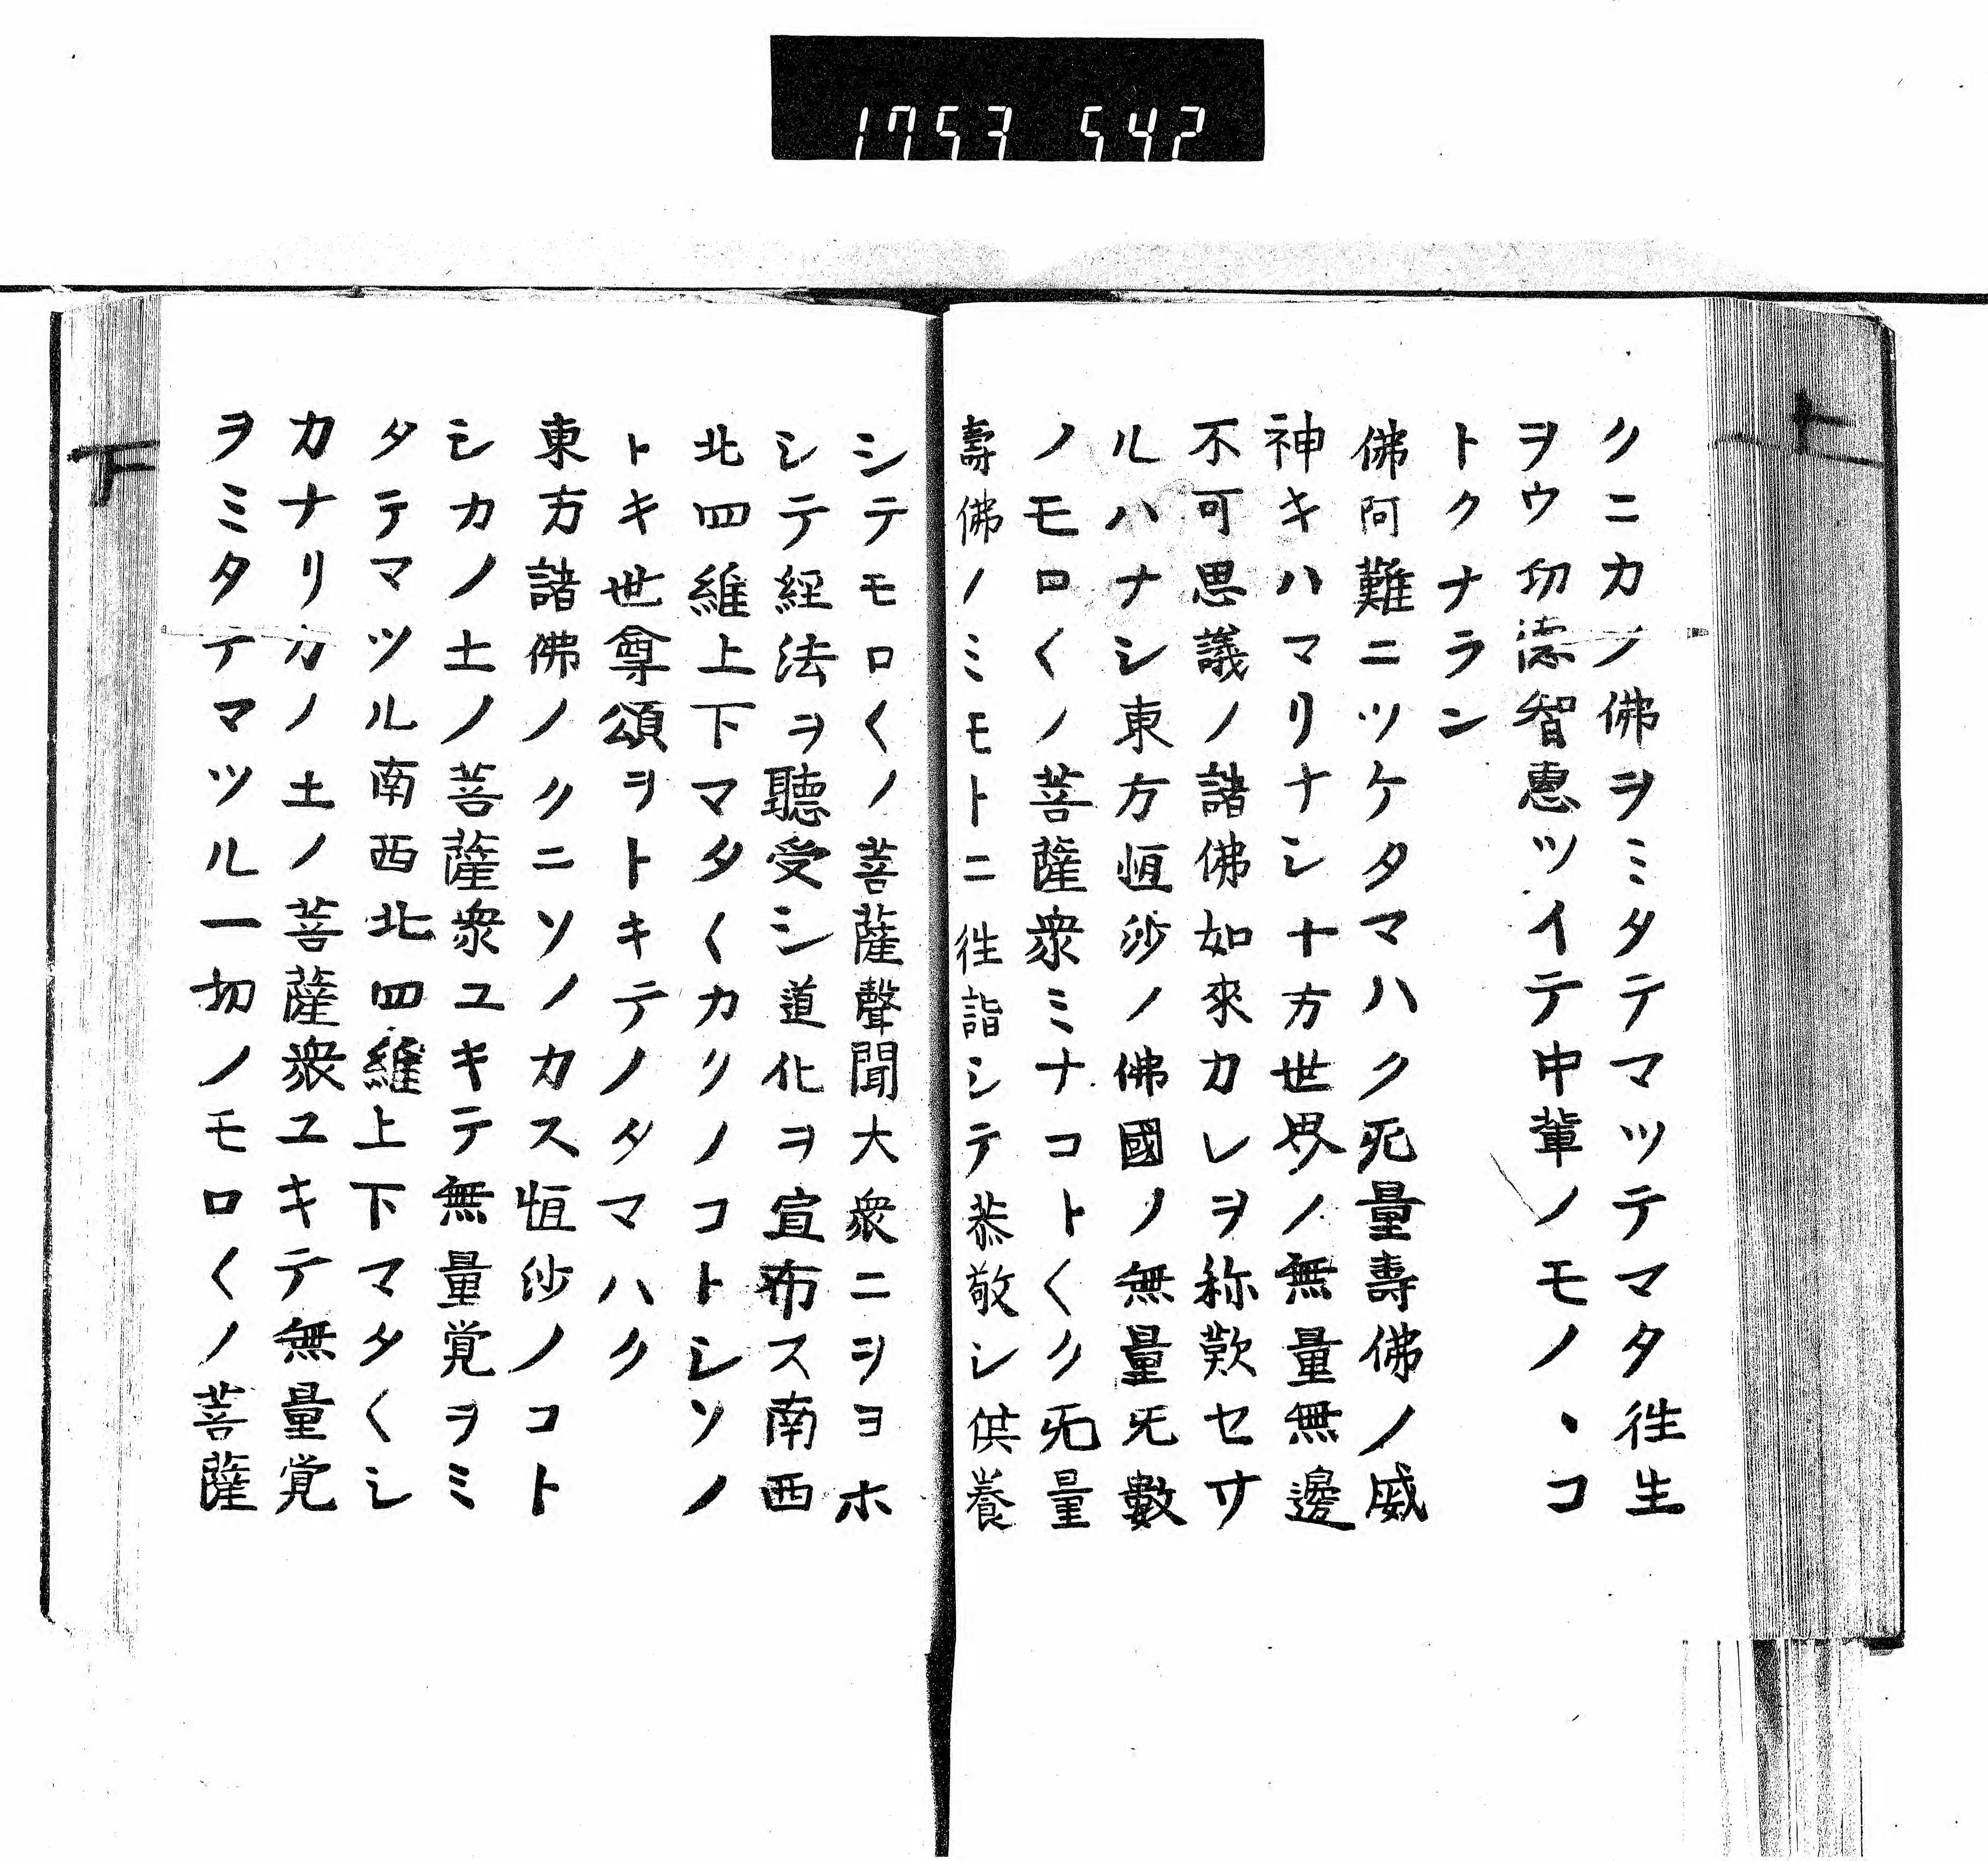 1753 542
上
クニカノ佛ヲミタテマツテマタ徃生
ヲウ功徳智惠ツイテ中輩ノモノヽコ
トクナラン
佛阿難ニツケタマハク无量壽佛ノ威
神キハマリナシ十方世界ノ無量無邊
不可思議ノ諸佛如來カレヲ称歎セサ
ルハナシ東方恒沙ノ佛國ノ無量无數
ノモロ〱ノ菩薩衆ミナコト〱ク无量
壽佛ノミモトニ徃詣シテ恭敬シ供養
シテモロ〱ノ菩薩聲聞大衆ニヲヨホ
シテ經法ヲ聽受シ道化ヲ宣布ス南西
北四維上下マタ〱カリノコトシソノ
トキ世尊頌ヲトキテノタマハク
東方諸佛ノクニソノカス恒沙ノコト
シカノ土ノ菩薩衆ユキテ無量覚ヲミ
タテマツル南西北四維上下マタ〱シ
カナリカノ土ノ菩薩衆ユキテ無量覚
ヲミタテマツル一切ノモロ〱ノ菩薩
下